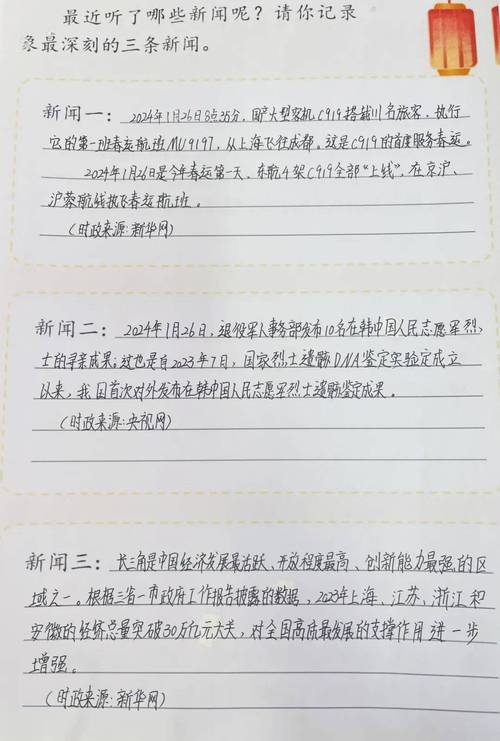 最近听了哪些新闻呢？请你记录
象最深刻的三条新闻。
新闻一：2024年1月26日8点35分，国产大型客机C919搭载川名旅客，执行
它的第一班春运航班MU9197，从上海飞往成都。这是C919的首度服务春运。
2024年1月26日是今年春运第一天，东航4架C919全部“上线”，在京沪、
沪蓉航线执飞春运航班。
（时政来源：新华网）
新闻二：2024年1月26日，退役军人事务部发布10名在韩中国人民志愿军烈
士的寻亲成果；这也是自2023年7月，国家烈士遗骸DNA鉴定实验定成立
以来，我国首次对外发布在韩中国人民志愿军烈士遗骸鉴定成果。
（时政来源：央视网）
新闻三：长三角是中国经济发展最活跃、开放程度最高、创新能力最强的区
域之一。根据三省一市政府工作报告披露的数据，2023年上海、江苏、浙江和
安徽的经济总量突破30万亿元大关，对全国高质量发展的支撑作用进一步
增强。
（时政来源：新华网）